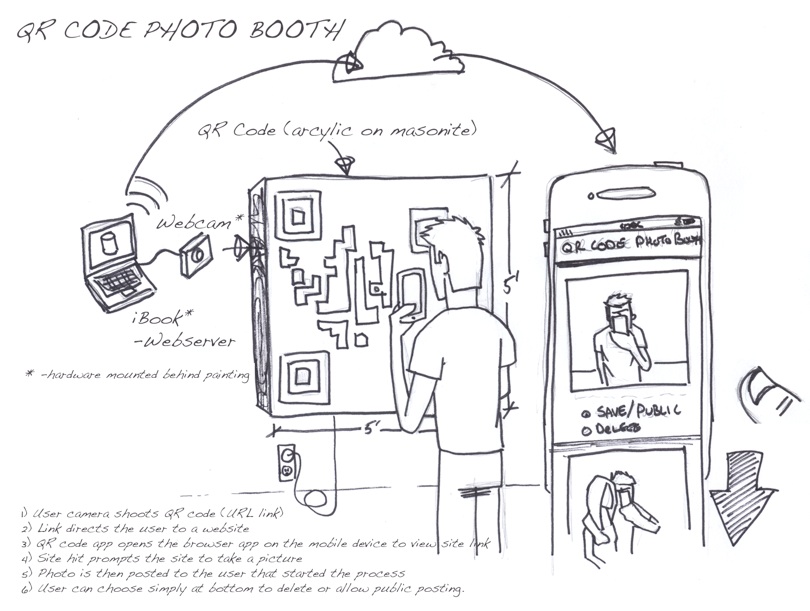 QR CODE PHOTO BOOTH
QR Code (arcylic on masonite)
Webcam*
iBook*
-Webserver
* -hardware mounted behind painting
5'
5'
QR CODE PHOTO BOOTH
SAVE/PUBLIC
DELETE
1) User camera shoots QR code (URL link)
2) Link directs the user to a website
3) QR code app opens the browser app on the mobile device to view site link
4) Site hit prompts the site to take a picture
5) Photo is then posted to the user that started the process
6) User can choose simply at bottom to delete or allow public posting.